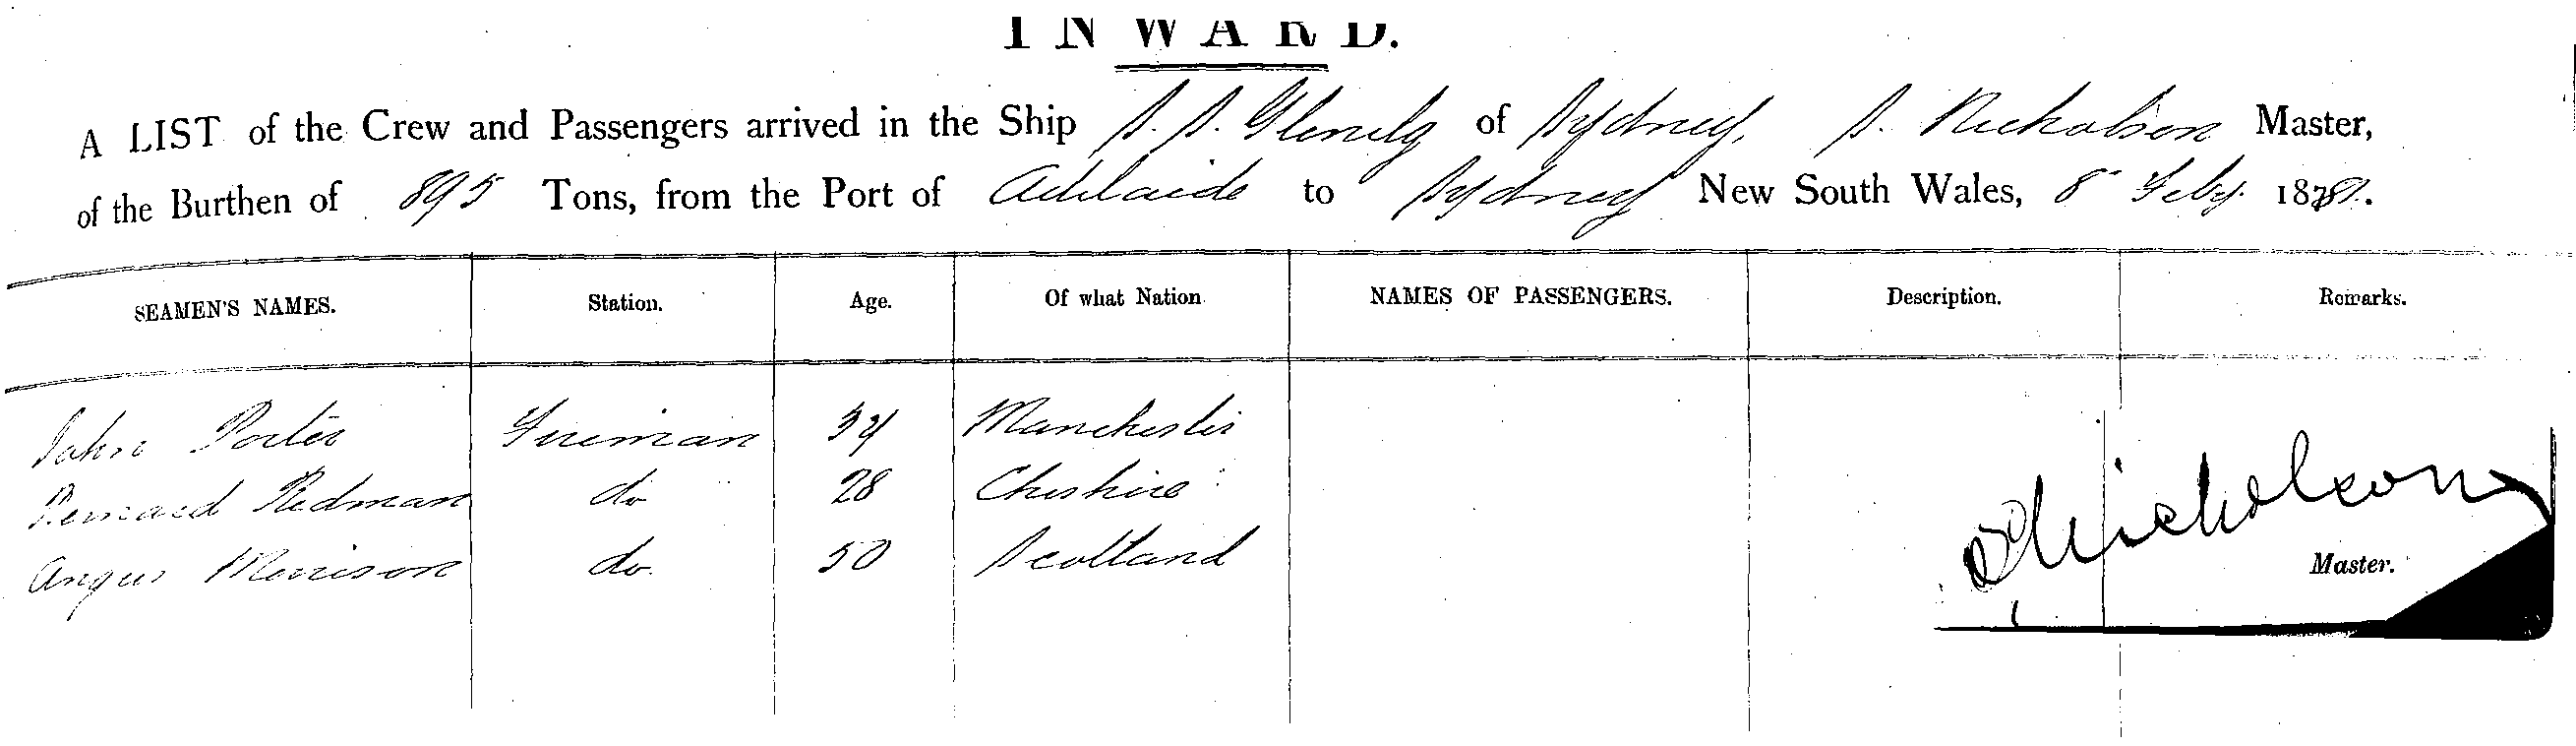 INWARD.
A LIST of the Crew and Passengers arrived in the Ship S.S. Glenelg of Sydney, S. Nicholson Master,
of the Burthen of 895 Tons, from the Port of Adelaide to Sydney New South Wales, 8 Feby. 188
SEAMEN'S NAMES. Station. Age. Of what Nation NAMES OF PASSENGERS. Description. Remarks.
John Porter Fireman 34 Manchester
Bernard Redman do 28 Cheshire
Angus Morrison do. 50 Scotland
Nicholson
Master.